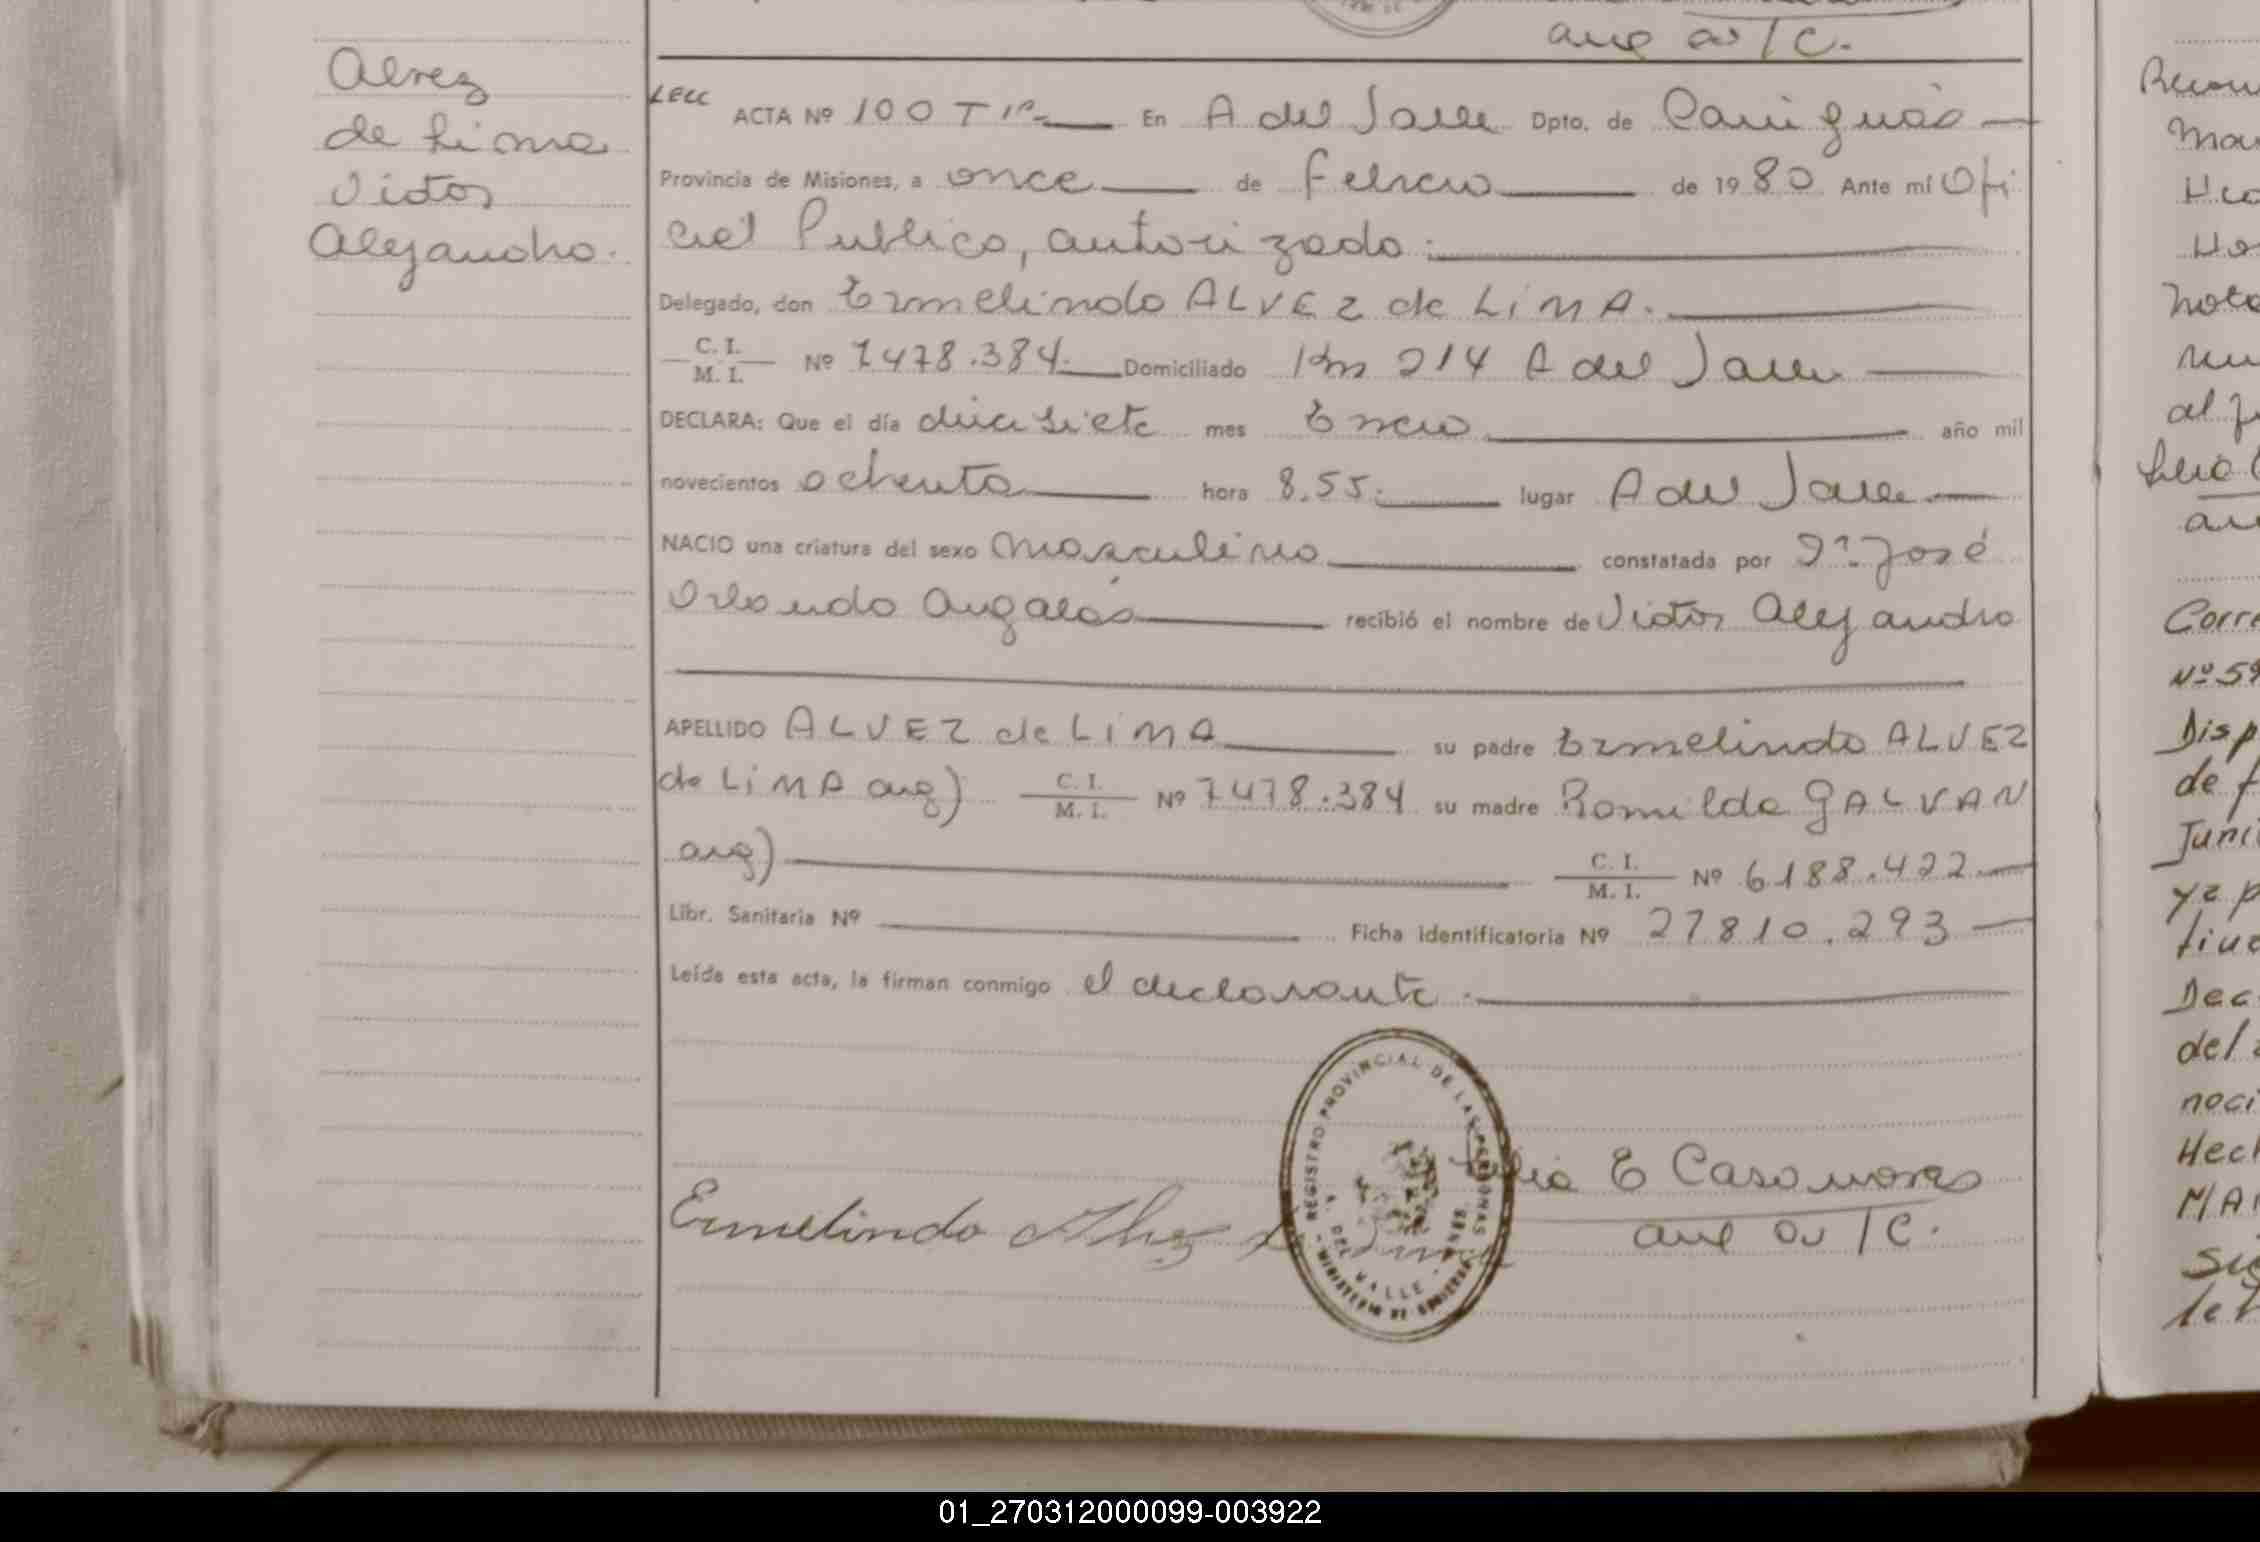 aux av/C.
Alvez
de Lima
Victor
Alejandro.
ACTA Nº 100 T 1º En A del Valle Dpto. de Cainguás
Provincia de Misiones, a once de Febrero de 1980 Ante mí Ofi
cial Publico, autorizado:
Delegado, don Ermelindo ALVEZ de LiMA.
C. I.
M. I. Nº 7478.384. Domiciliado Km 214 A del Valle
DECLARA: Que el día diecisiete mes Enero año mil
novecientos ochenta hora 8.55. lugar A del Valle
NACIO una criatura del sexo masculino constatada por Dr. José
Orlando recibió el nombre de Victor Alejandro
APELLIDO ALVEZ de LiMA su padre Ermelindo ALVEZ
de LiMA arg) C. I.
M. I. Nº 7478.384 su madre Romilda GALVAN
arg) C. I.
M. I. Nº 6188.422
Libr. Sanitaria Nº Ficha identificatoria Nº 27810.293
Leída esta acta, la firman conmigo el declarante.
REGISTRO PROVINCIAL DE LAS PERSONAS
A. DEL VALLE - MNES.
MINISTERIO DE GOBIERNO
Ermelindo Alvez de Lima
E Casanova
aux av/C.
Corre
Nº 59
Disp
de f
Juri
ya p
Dec
del
noci
Hech
MAR
01_270312000099-003922